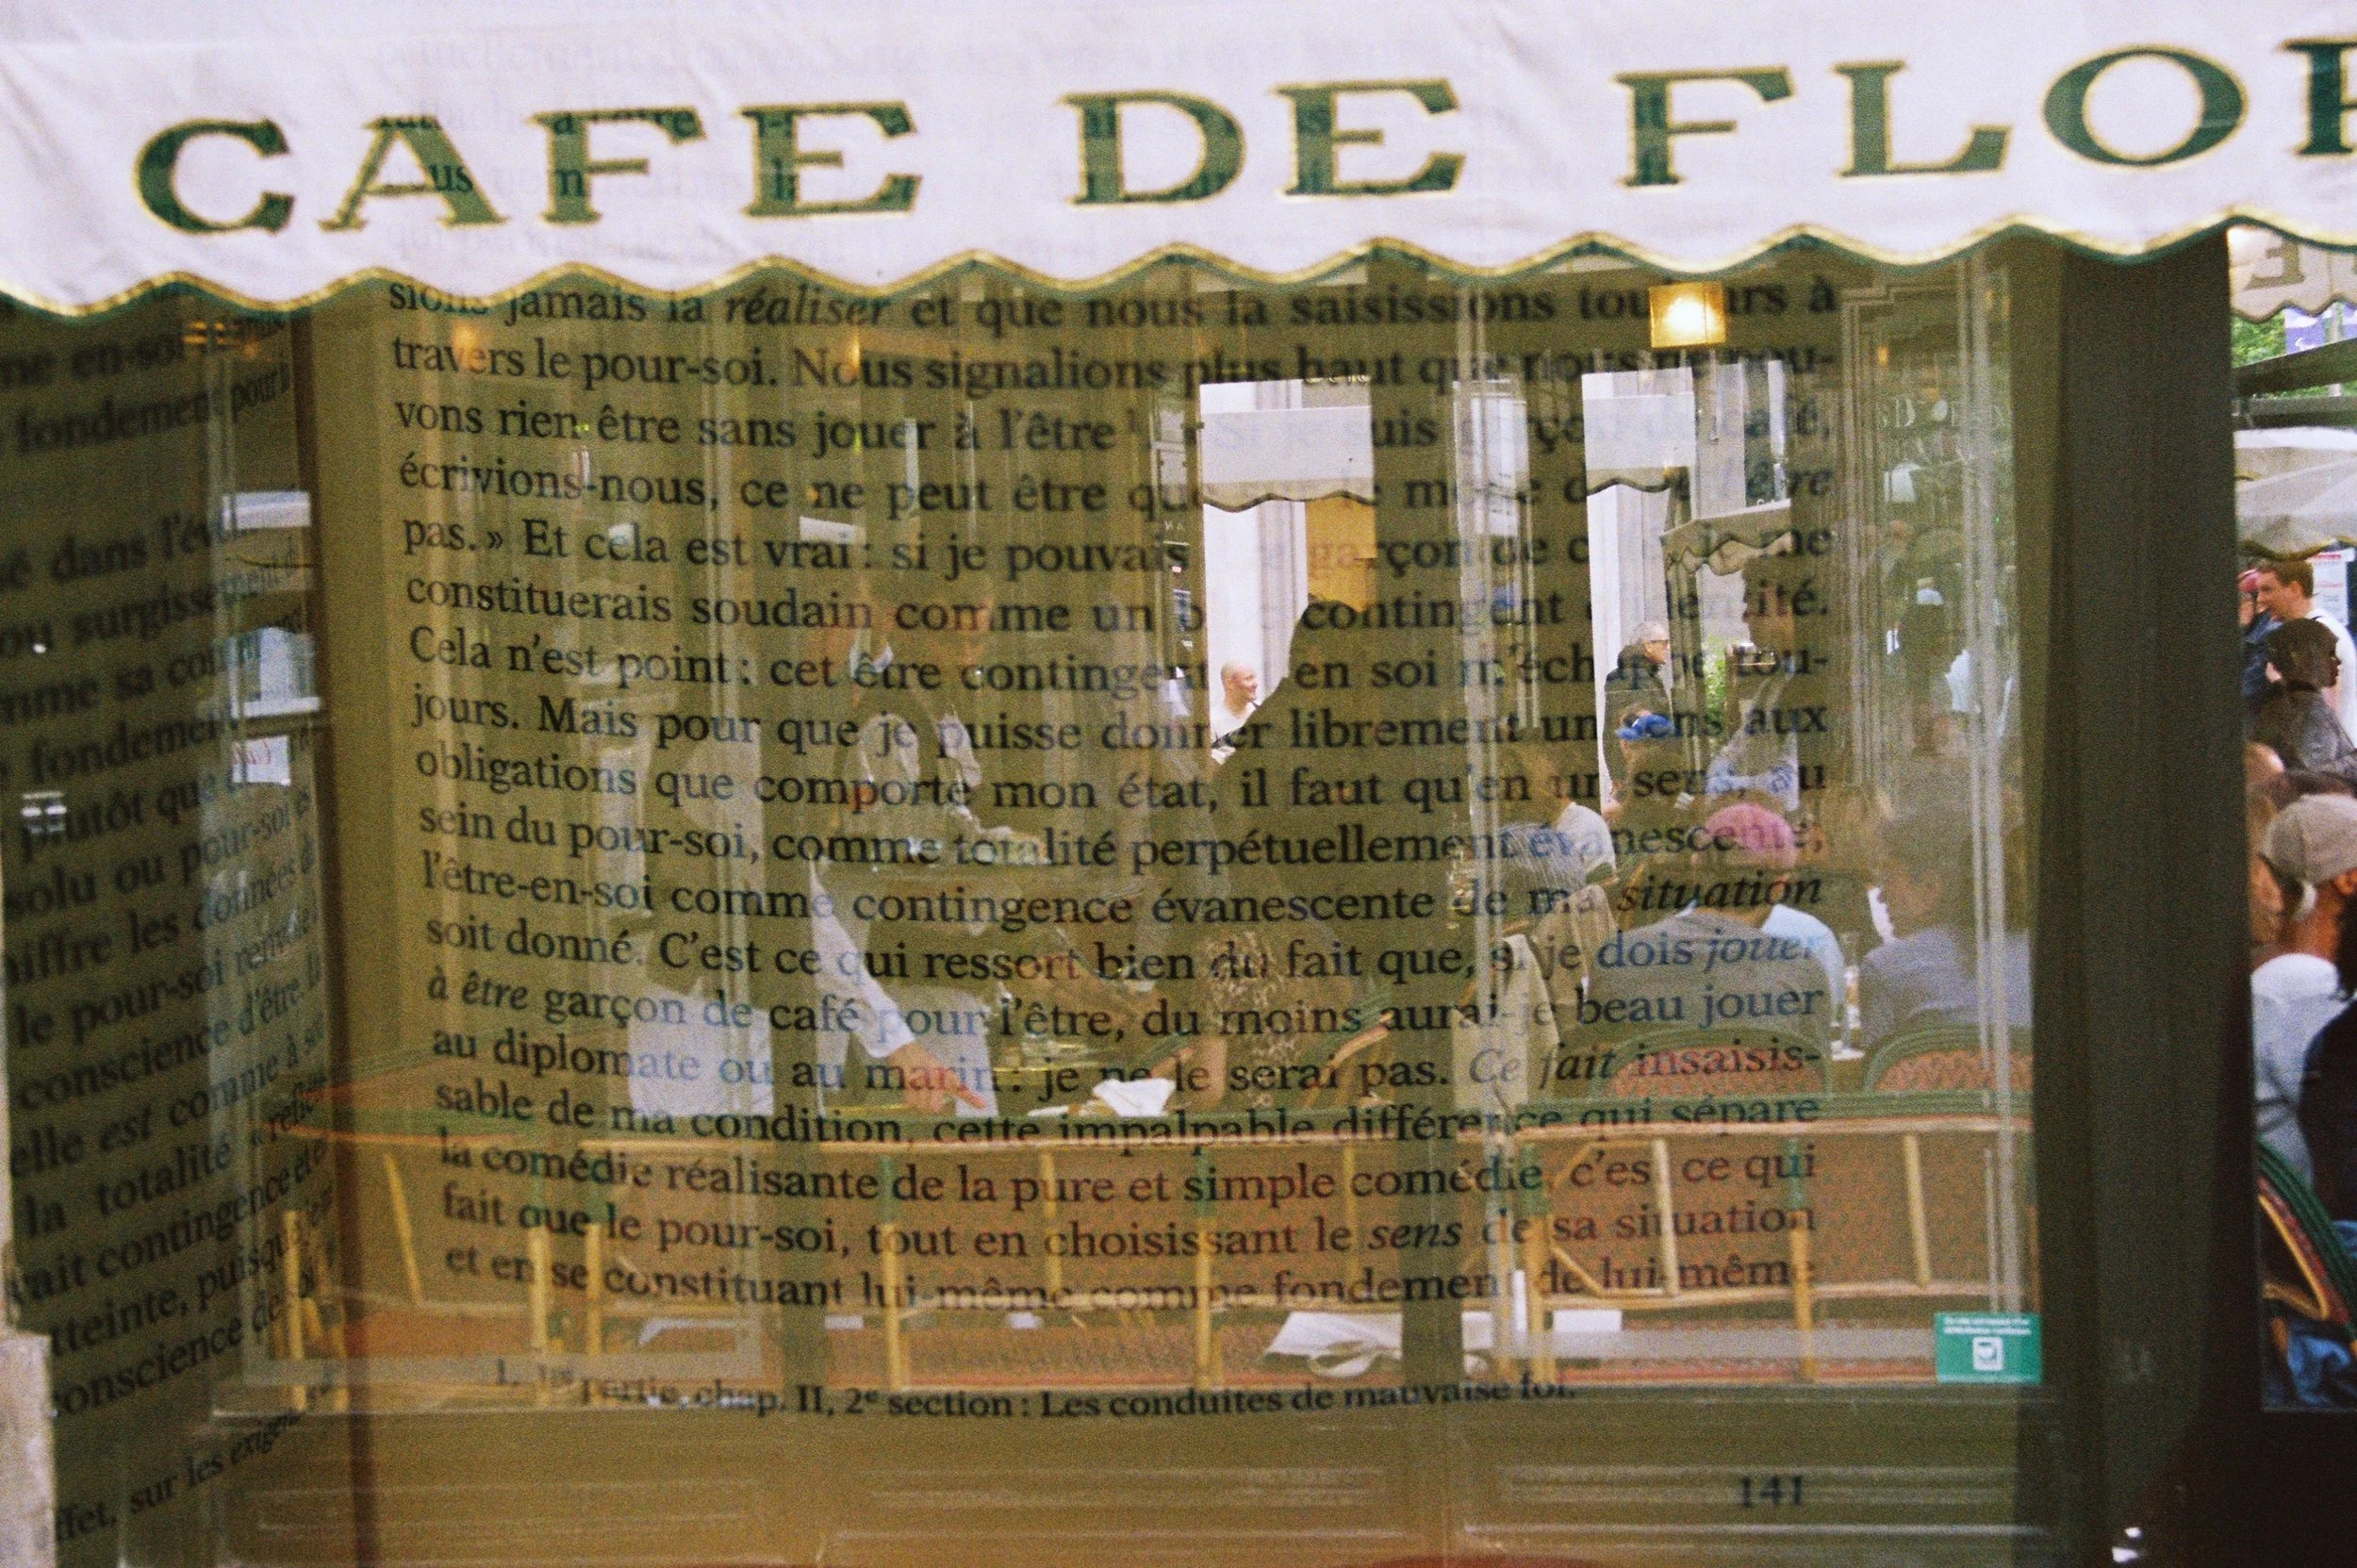 CAFE DE FLOR
jamais la réaliser et que nous la saisissions toujours à
travers le pour-soi. Nous signalions plus haut que nous ne pou-
vons rien être sans jouer à l'être 1. « Si je suis garçon de café,
écrivions-nous, ce ne peut être que sur le mode de ne l'être
pas. » Et cela est vrai : si je pouvais être garçon de café, je me
constituerais soudain comme un bloc contingent d'identité.
Cela n'est point : cet être contingent et en soi m'échappe tou-
jours. Mais pour que je puisse donner librement un sens aux
obligations que comporte mon état, il faut qu'en un sens, au
sein du pour-soi, comme totalité perpétuellement évanescente,
l'être-en-soi comme contingence évanescente de ma situation
soit donné. C'est ce qui ressort bien du fait que, si je dois jouer
à être garçon de café pour l'être, du moins aurai-je beau jouer
au diplomate ou au marin : je ne le serai pas. Ce fait insaisis-
sable de ma condition, cette impalpable différence qui sépare
la comédie réalisante de la pure et simple comédie, c'est ce qui
fait que le pour-soi, tout en choisissant le sens de sa situation
et en se constituant lui-même comme fondement de lui-même
1. Partie, chap. II, 2e section : Les conduites de mauvaise foi.
141
fondement pour
dans
ou
fondement
plutôt que
solu ou pour-soi
les données
le pour-soi
conscience d'être. La
elle est comme à son
la totalité
contingence et
puisque
conscience de
sur les